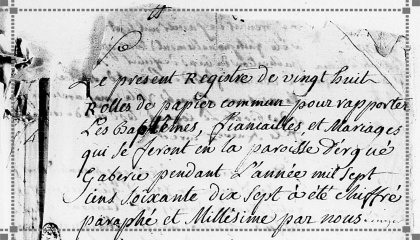 Le present Registre de vingt huit
Rolles de papier commun pour rapporter
Les Baptêmes, fiancailles, et Mariages
qui se feront en la paroisse D'ergué
Gaberic pendant L'année mil sept
cens soixante dix sept à été chiffré
paraphé et Millésime par nous